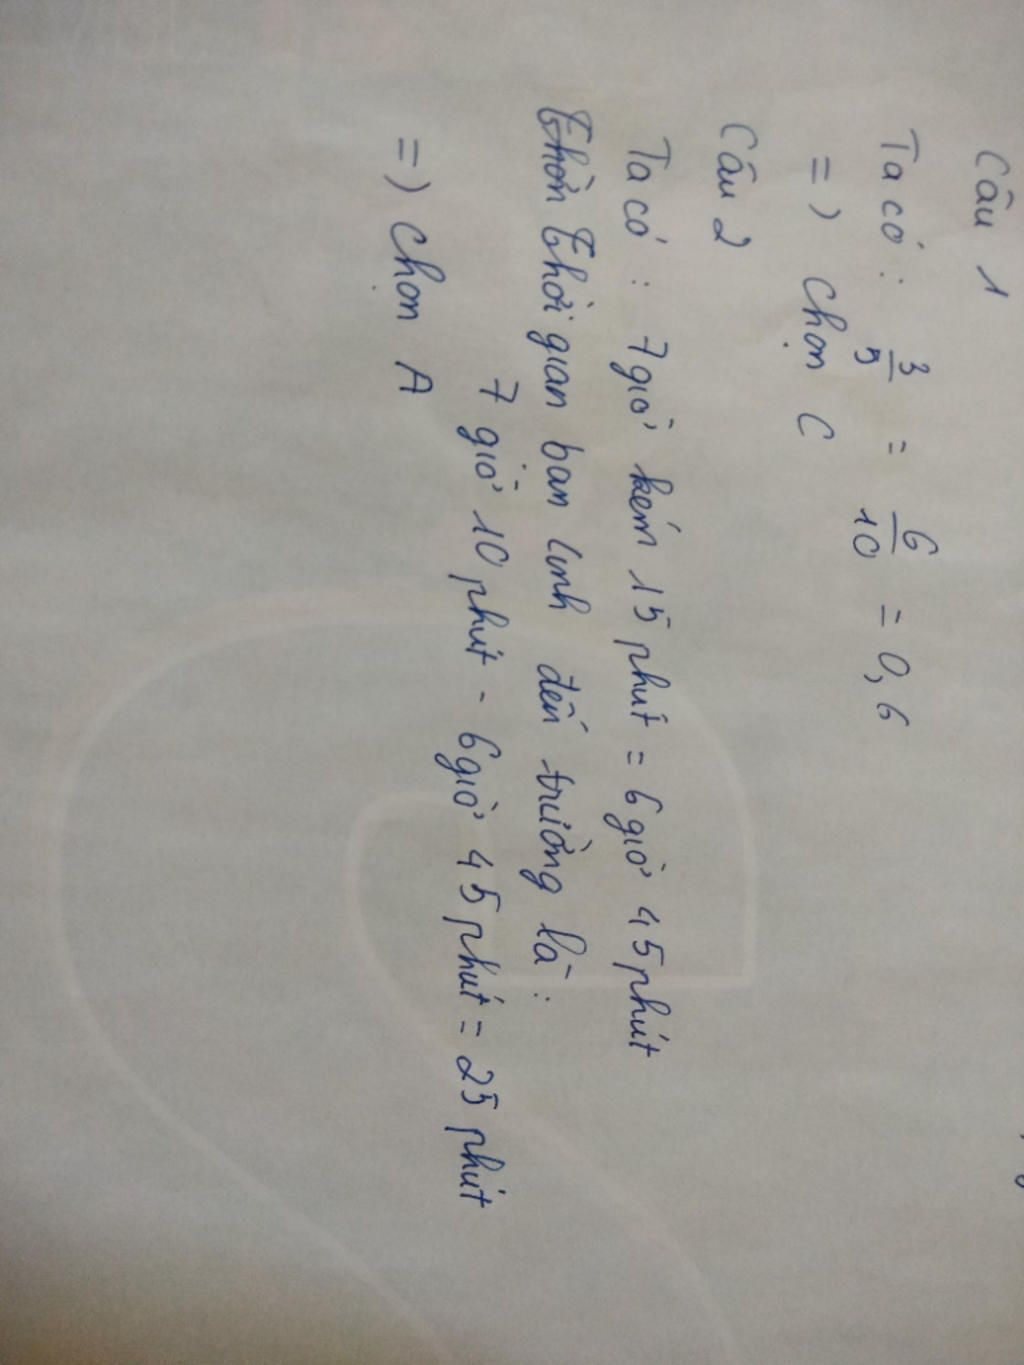 Câu 1
Ta có : 3/5 = 6/10 = 0,6
=) Chọn C
Câu 2
Ta có : 7 giờ kém 15 phút = 6 giờ 45 phút
Thời Thời gian bạn Linh đến trường là :
7 giờ 10 phút - 6 giờ 45 phút = 25 phút
=) Chọn A